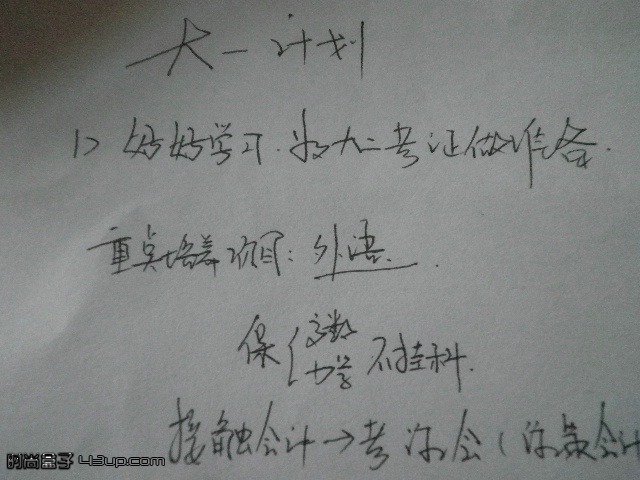 大一计划
1> 好好学习.为大二考证做准备.
重点培养项目:外语.
保{高数 力学 不挂科.
接触会计→考 注会(注册会计
时尚盒子 43up.com